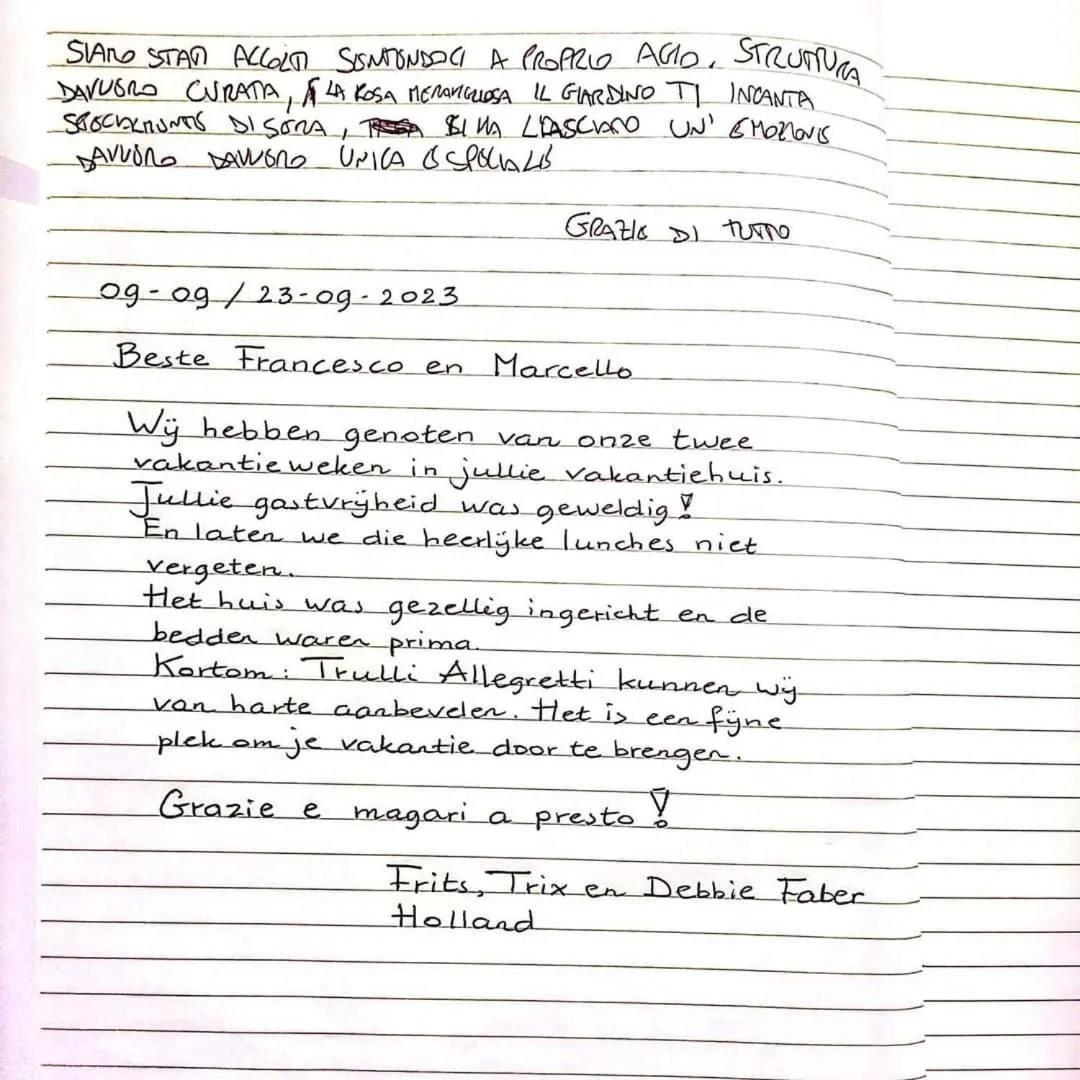 SIAMO STATI ACCOLTI SENTENDOCI A PROPRIO AGIO. STRUTTURA
DAVVERO CURATA, LA ROSA MERAVIGLIOSA IL GIARDINO TI INCANTA
SPECIALMENTE DI SERA, CI HA LASCIATO UN' EMOZIONE
DAVVERO DAVVERO UNICA E SPECIALE
GRAZIE DI TUTTO
09-09 / 23-09-2023
Beste Francesco en Marcello
Wij hebben genoten van onze twee
vakantieweken in jullie vakantiehuis.
Jullie gastvrijheid was geweldig!
En laten we die heerlijke lunches niet
vergeten.
Het huis was gezellig ingericht en de
bedden waren prima.
Kortom: Trulli Allegretti kunnen wij
van harte aanbevelen. Het is een fijne
plek om je vakantie door te brengen.
Grazie e magari a presto!
Frits, Trix en Debbie Faber
Holland